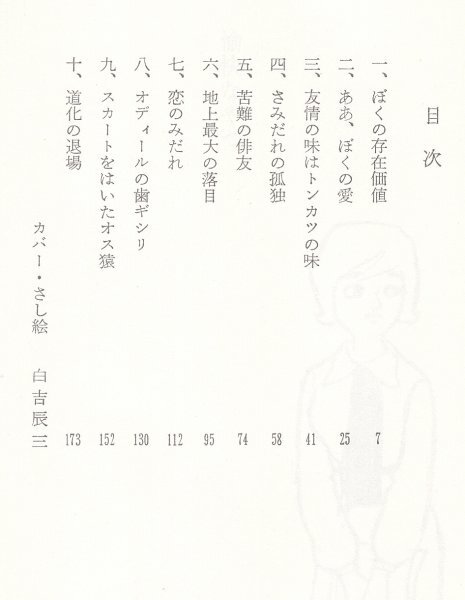 目次
一、ぼくの存在価値 7
二、ああ、ぼくの愛 25
三、友情の味はトンカツの味 41
四、さみだれの孤独 58
五、苦難の俳友 74
六、地上最大の落目 95
七、恋のみだれ 112
八、オディールの歯ギシリ 130
九、スカートをはいたオス猿 152
十、道化の退場 173
カバー・さし絵 白吉辰三